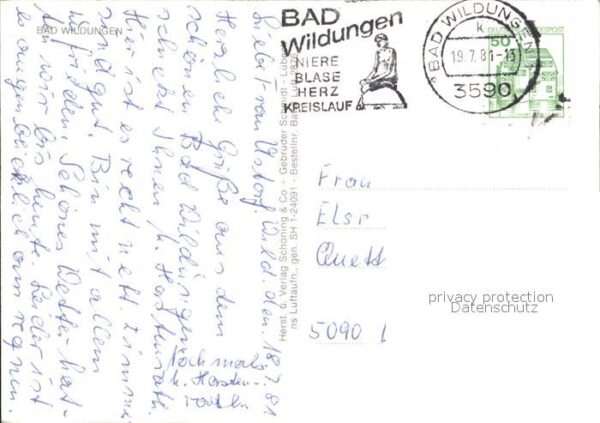 BAD WILDUNGEN
Wild. den. 18.7.81
Herzliche Grüße aus dem
schönen Bad Wildungen
schickt Ihnen
Hier ist es recht nett. Zimmer
sind gut. Bin mit allem
zufrieden. Schönes Wetter hat-
ten wir bis heute. Leider ist
es augenblicklich am regnen.
Nochmals
h.
Herst. u. Verlag Schöning & Co + Gebrüder Schmidt - Lübeck
ns Luftaufn., gen. SH 1-24091 - Bestellnr. Ba
BAD
Wildungen
NIERE
BLASE
HERZ
KREISLAUF
BAD WILDUNGEN
k
19.7.81-13
3590
DEUTSCHE BUNDESPOST
50
Frau
Else
Quett
5090 L
privacy protection
Datenschutz